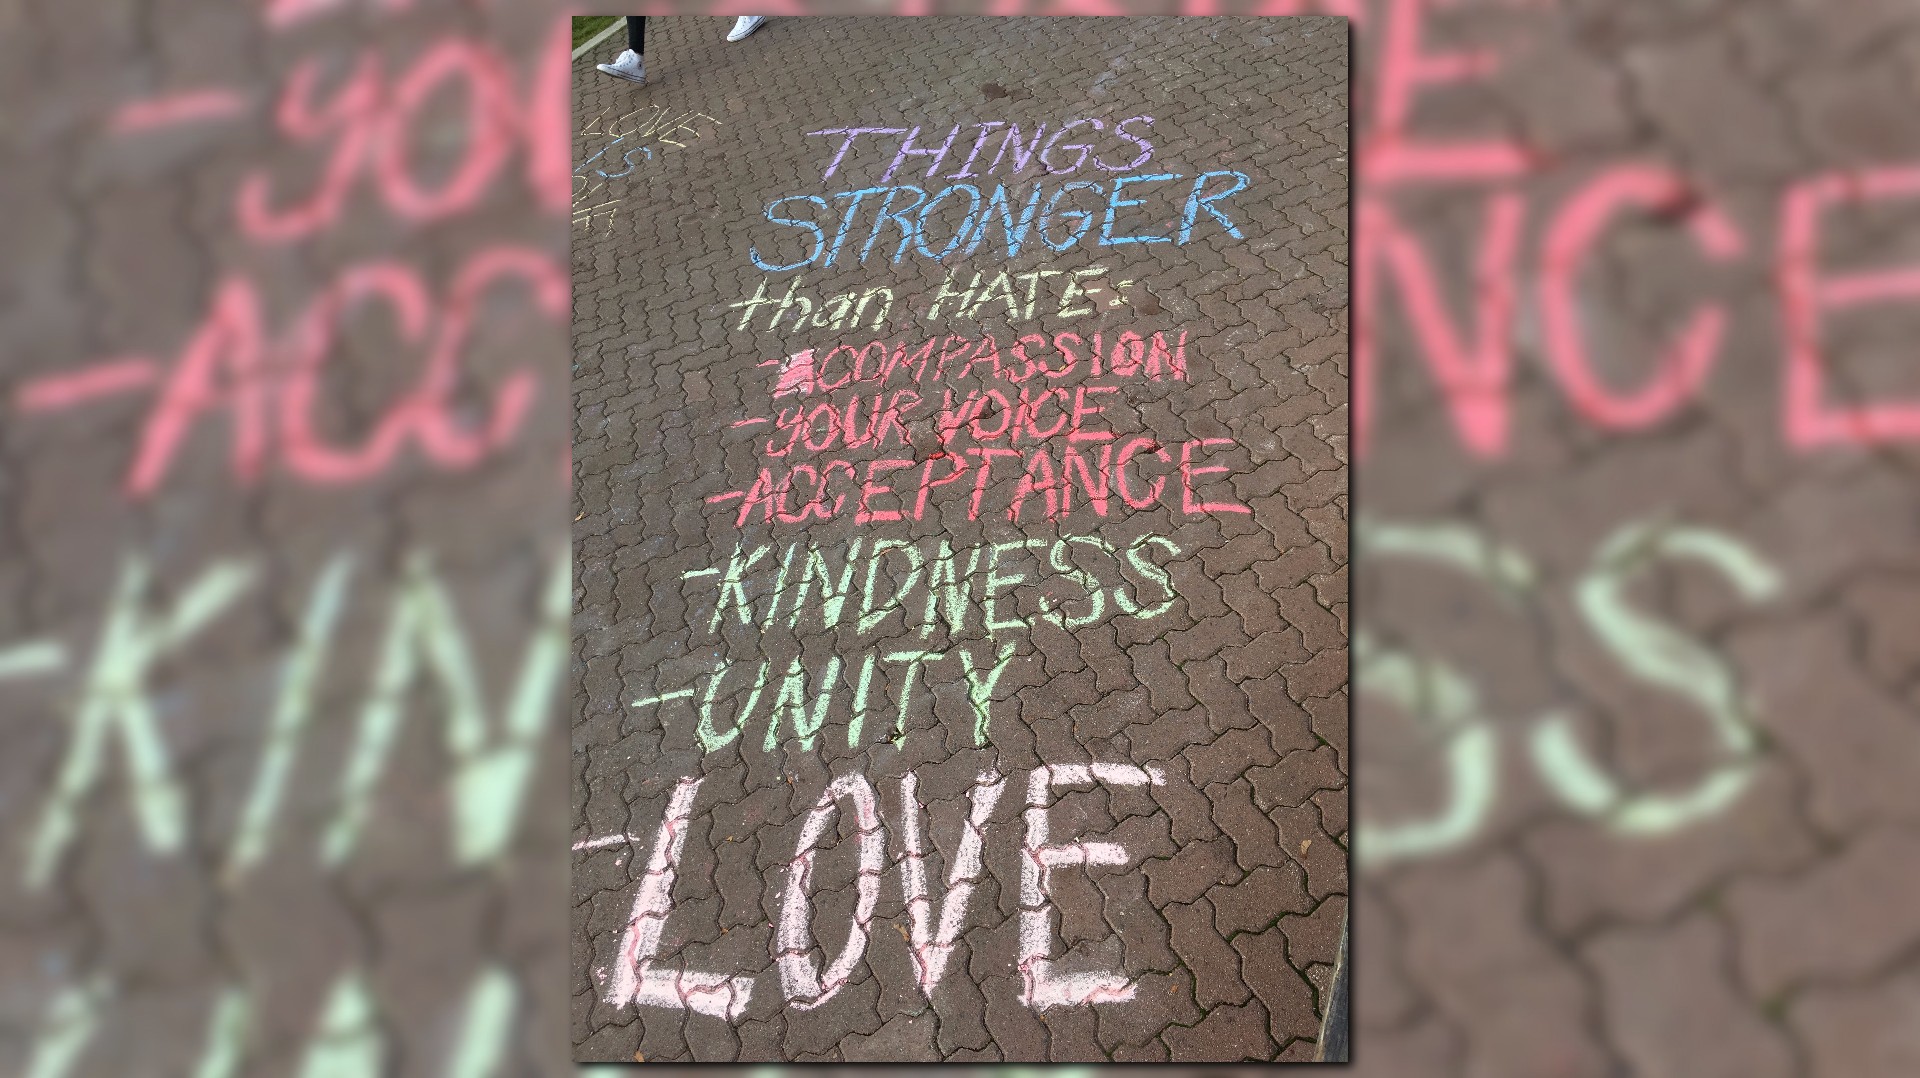 LOVE
IS
THINGS
STRONGER
than HATE:
-COMPASSION
-YOUR VOICE
-ACCEPTANCE
-KINDNESS
-UNITY
-LOVE